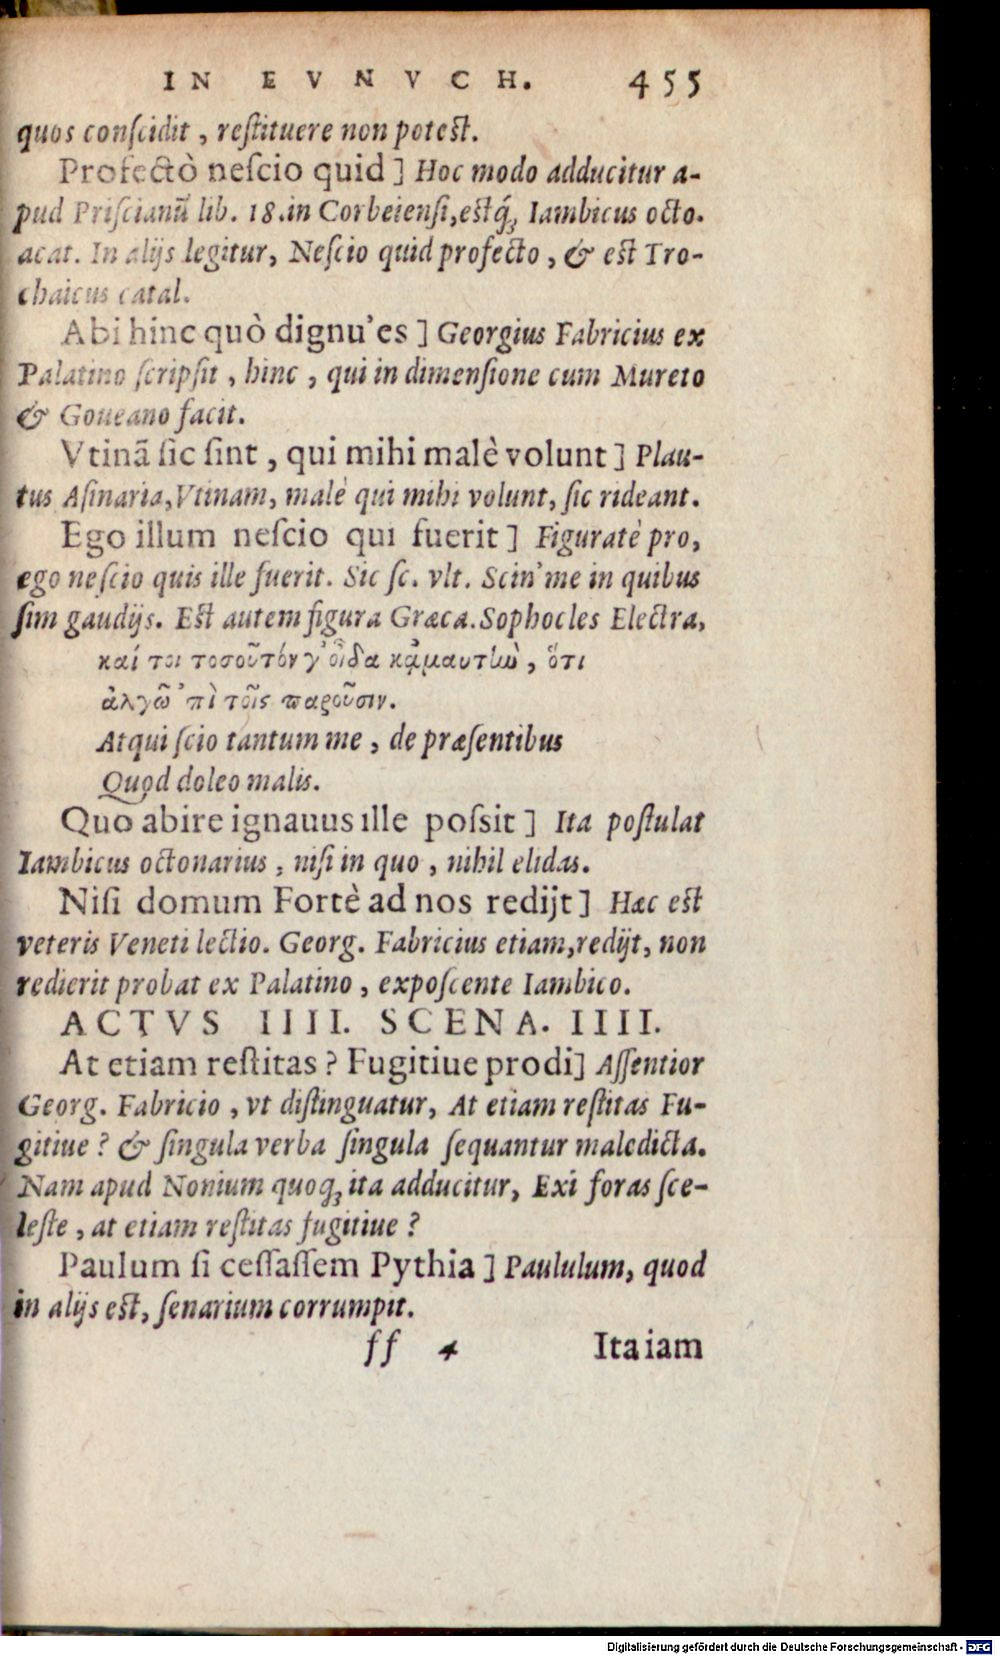 IN EVNVCH. 455
quos conſcidit, reſtituere non potest.
Profectò neſcio quid] Hoc modo adducitur a-
pud Priſcianũ lib. 18. in Corbeienſi, estq́ꝫ Iambicus octo.
acat. In alijs legitur, Neſcio quid profecto, & est Tro-
chaicus catal.
Abi hinc quò dignu'es] Georgius Fabricius ex
Palatino ſcripſit, hinc, qui in dimenſione cum Mureto
& Goueano facit.
Vtinã ſic ſint, qui mihi malè volunt] Plau-
tus Aſinaria, Vtinam, malè qui mihi volunt, ſic rideant.
Ego illum neſcio qui fuerit] Figuratè pro,
ego neſcio quis ille fuerit. Sic ſc. vlt. Scin'me in quibus
ſim gaudijs. Est autem figura Græca. Sophocles Electra,
καί τοι τοσοῦτόν γ' οἶδα κᾀμαυτὼ, ὅτι
ἀλγῶ 'πὶ τοῖς παροῦσιν.
Atqui ſcio tantum me, de præſentibus
Quod doleo malis.
Quo abire ignauus ille poſsit] Ita poſtulat
Iambicus octonarius, niſi in quo, nihil elidas.
Niſi domum Fortè ad nos redijt] Hæc est
veteris Veneti lectio. Georg. Fabricius etiam, redijt, non
redierit probat ex Palatino, expoſcente Iambico.
ACTVS IIII. SCENA. IIII.
At etiam reſtitas? Fugitiue prodi] Aſſentior
Georg. Fabricio, vt diſtinguatur, At etiam reſtitas Fu-
gitiue? & ſingula verba ſingula ſequantur maledicta.
Nam apud Nonium quoqꝫ ita adducitur, Exi foras ſce-
leſte, at etiam reſtitas fugitiue?
Paulum ſi ceſſaſſem Pythia] Paululum, quod
in alijs est, ſenarium corrumpit.
ff 4 Ita iam
Digitalisierung gefördert durch die Deutsche Forschungsgemeinschaft - DFG